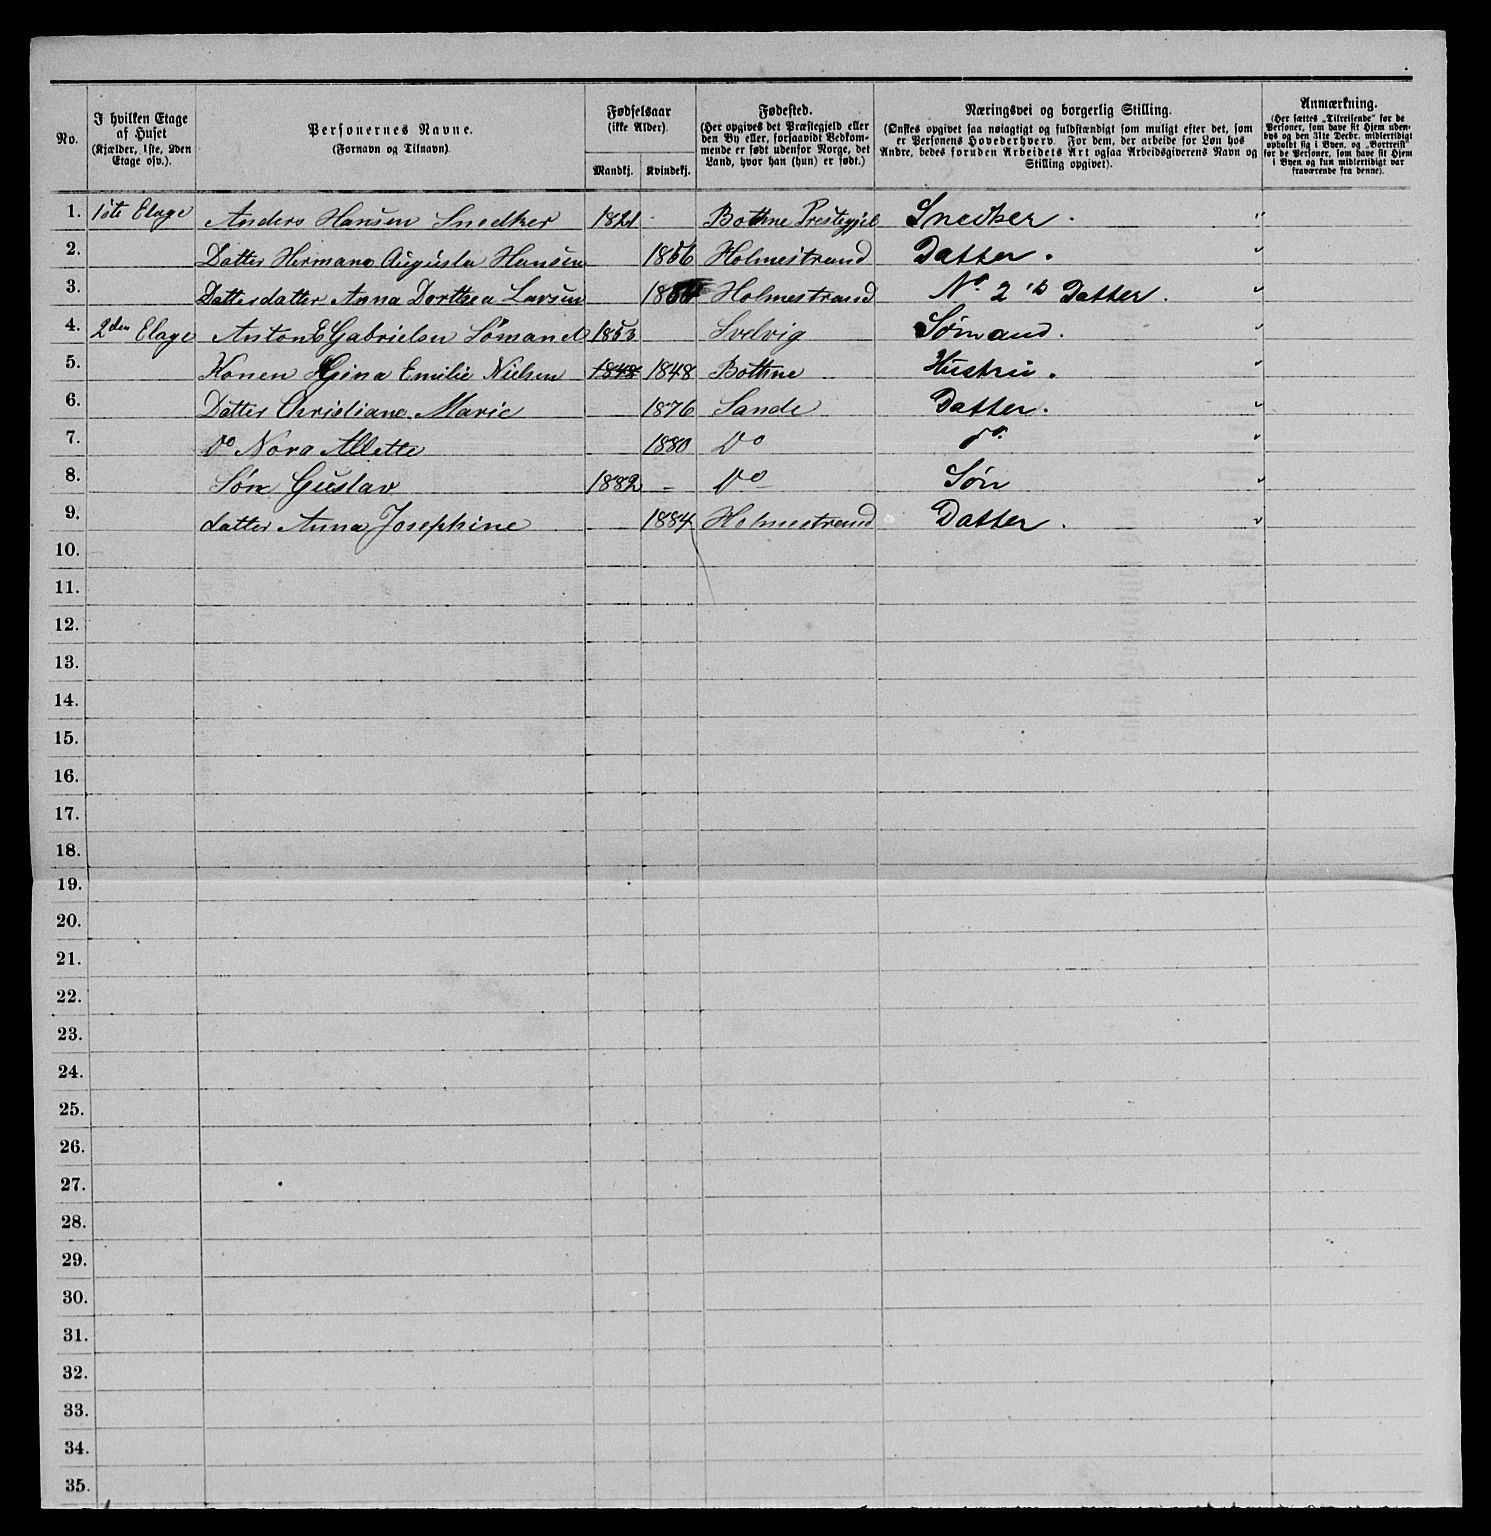 No.
I hvilken Etage af Huset (Kjælder, 1ste, 2den Etage osv.).
Personernes Navne.
(Fornavn og Tilnavn).
Fødselsaar (ikke Alder).
Mandkj. Kvindekj.
Fødested.
(Her opgives det Præstegjeld eller den By eller, forsaavidt Bedkommende er født udenfor Norge, det Land, hvor han (hun) er født.)
Næringsvei og borgerlig Stilling.
(Ønskes opgivet saa nøiagtigt og fuldstændigt som muligt efter det, som er Personens Hovederhverv. For dem, der arbeide for Løn hos Andre, bedes foruden Arbeidets Art ogsaa Arbeidsgiverens Navn og Stilling opgivet).
Anmærkning.
(Her sættes „Tilreisende" for de Personer, som have sit Hjem udenbys og den 31te Decbr. midlertidigt opholdt sig i Byen, og „Bortreist" for de Personer, som have sit Hjem i Byen og kun midlertidigt var fraværende fra denne).
1. 1ste Etage Anders Hansen Snedker 1821 - Bothne Prestegjel Snedker. "
2. Datter Hermane Augusta Hansen 1856 Holmestrand Datter. "
3. Datterdatter Anna Dorthea Larsen Holmestrand No 2's Datter. "
4. 2den Etage Anton E Gabrielsen Sømand 1853 Svelvig Sømand. "
5. Konen Gina Emilie Nielsen 1848 1848 Bothne Hustru. "
6. Datter Christiane Marie 1876 Sande Datter. "
7. Do Nora Allette 1880 Do do. "
8. Søn Gustav 1882 - Do Søn "
9. datter Anna Josephine 1884 Holmestrand Datter. "
10.
11.
12.
13.
14.
15.
16.
17.
18.
19.
20.
21.
22.
23.
24.
25.
26.
27.
28.
29.
30.
31.
32.
33.
34.
35.